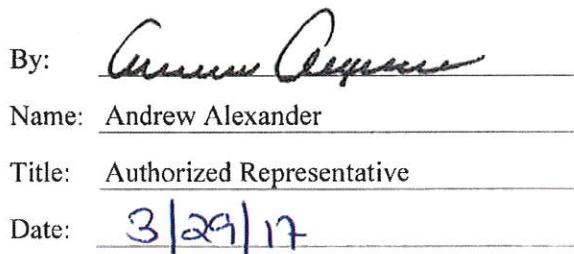 By:
Name: Andrew Alexander
Title: Authorized Representative
Date: 3/29/17